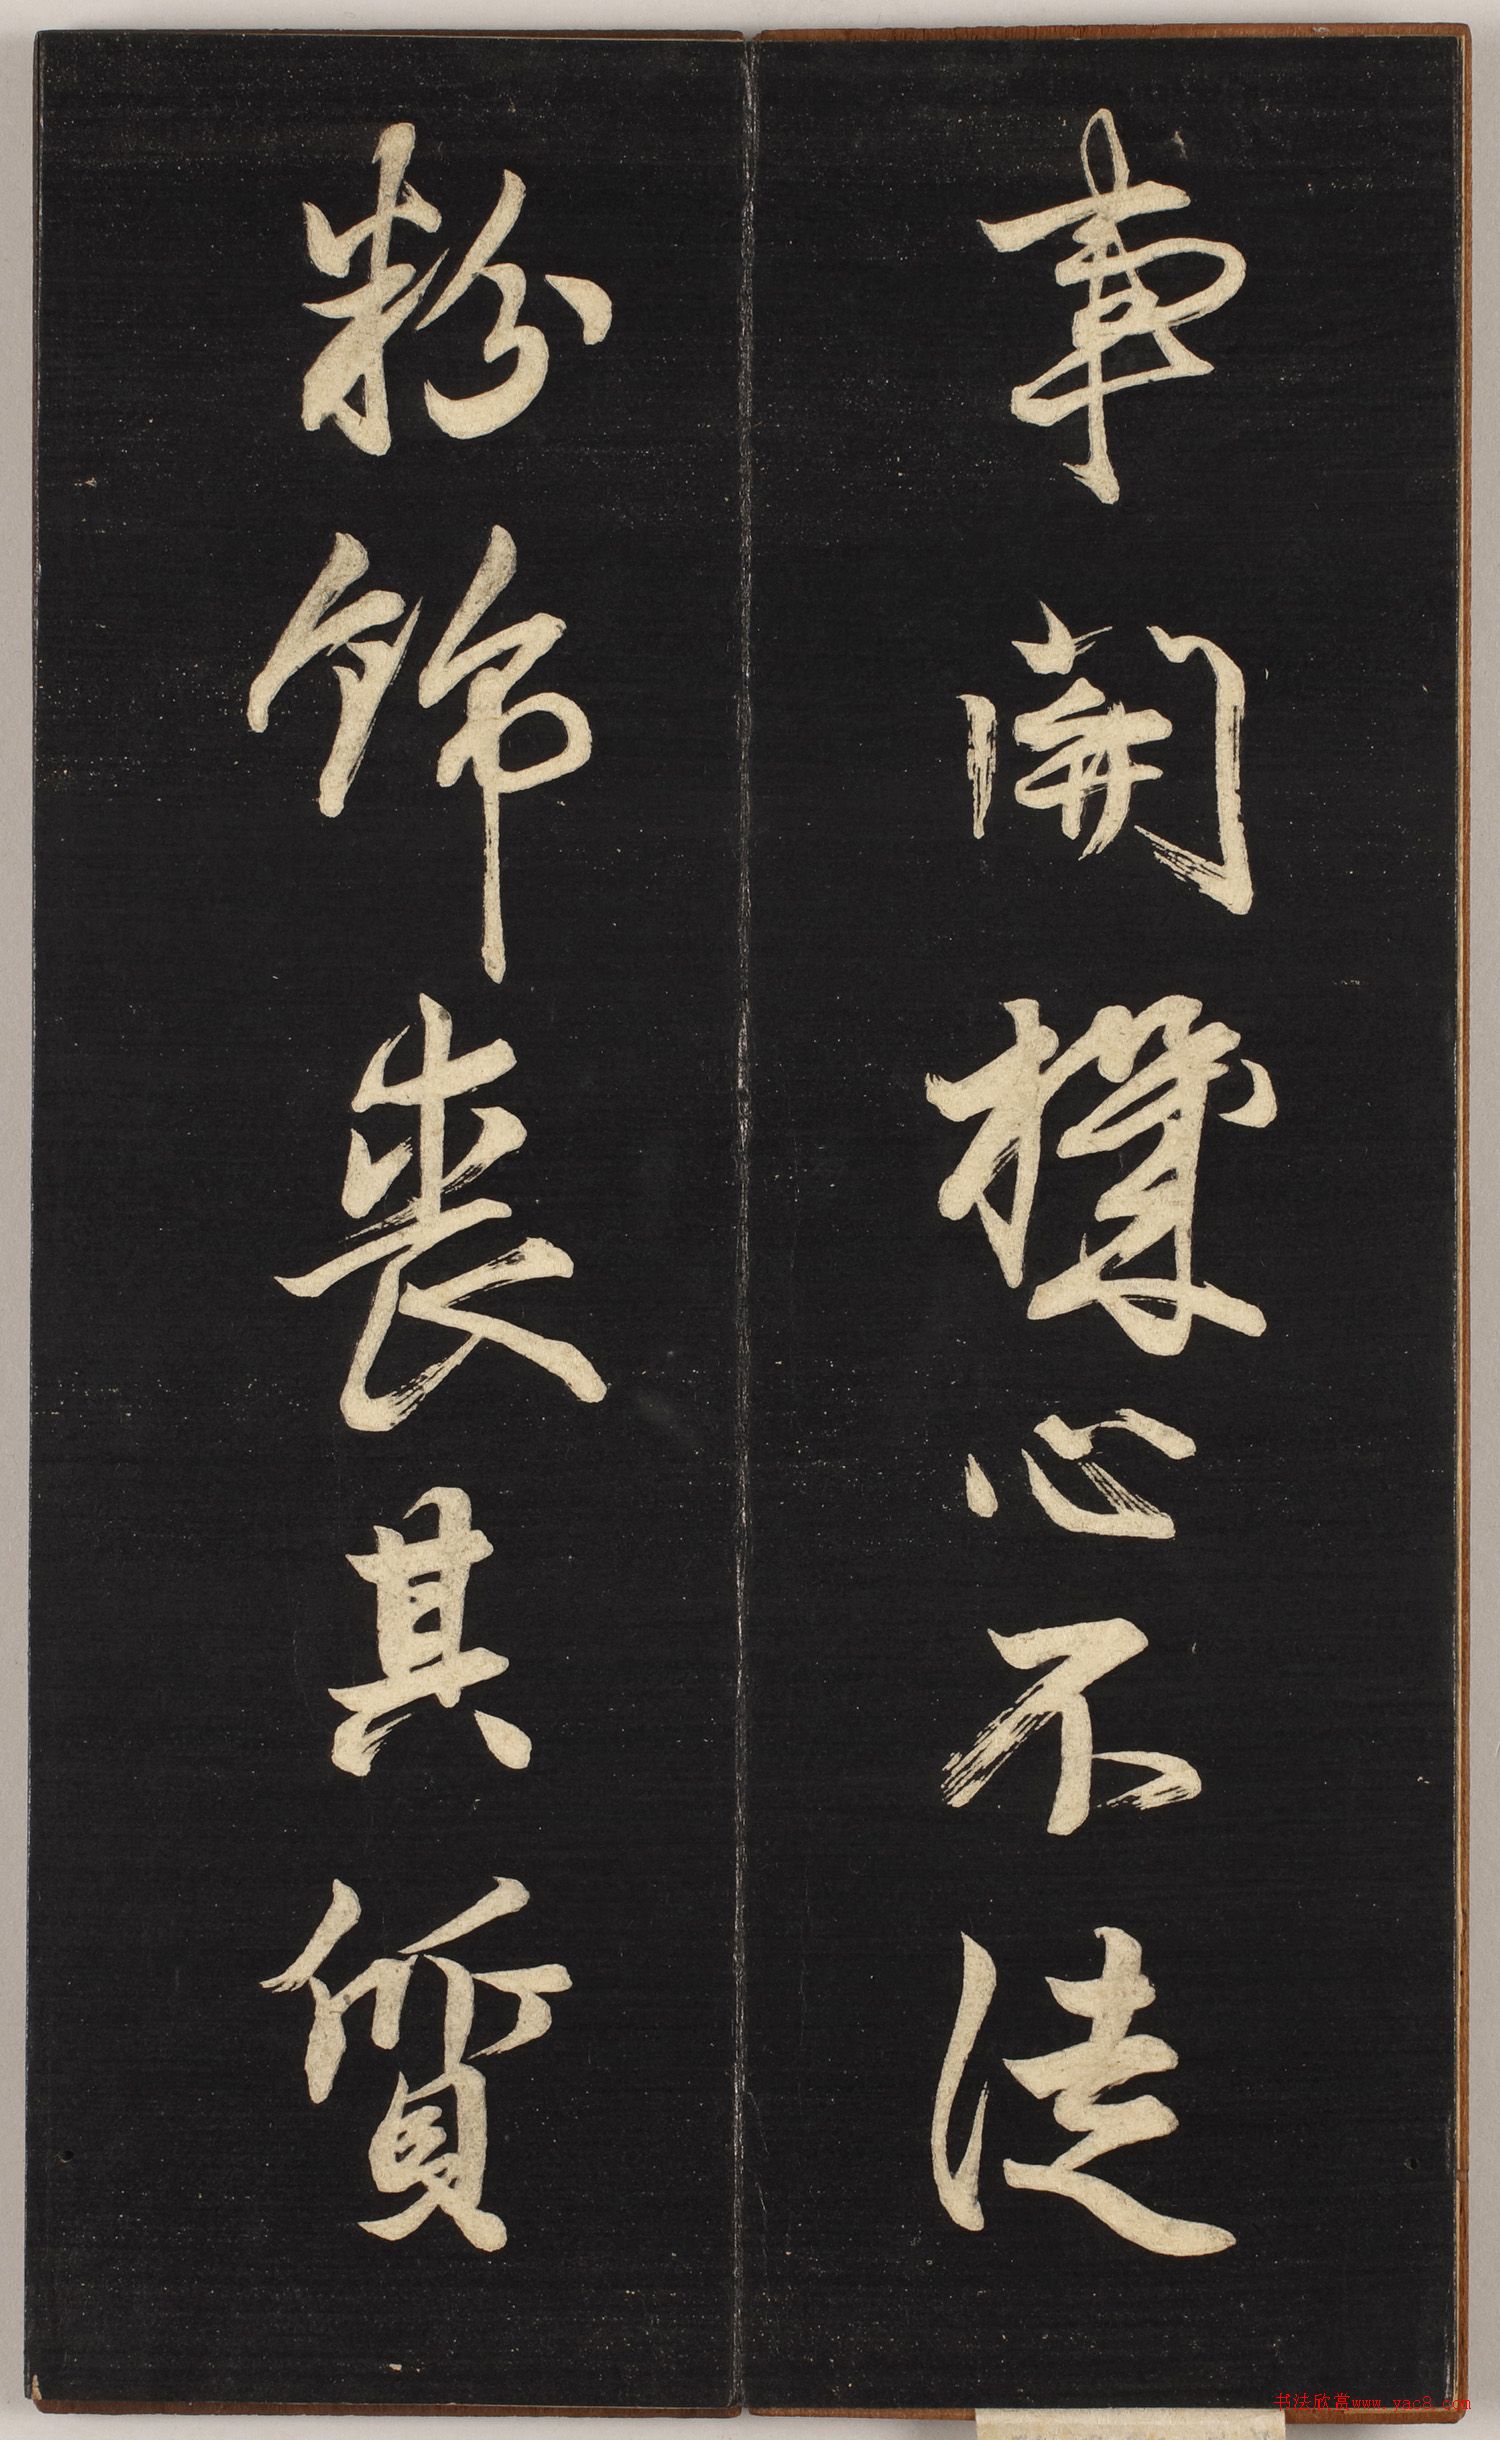 事開樸心不徒
粉飾喪其質
书法欣赏www.yac8.com